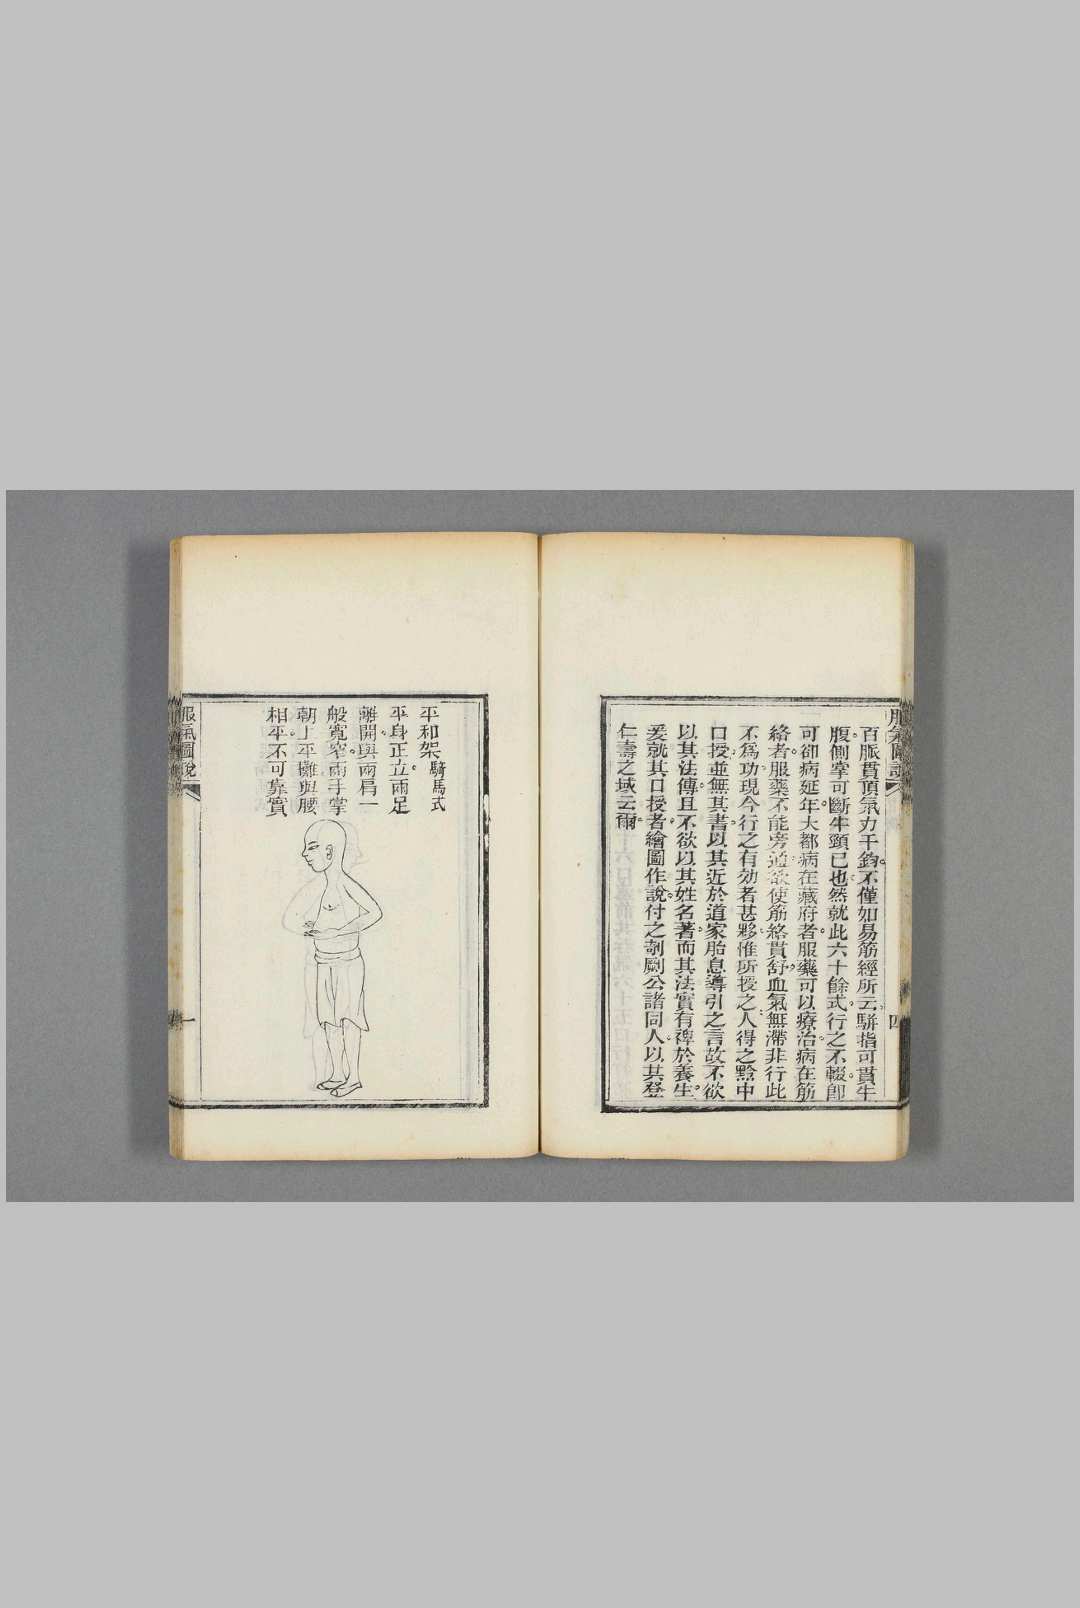 百脈貫頂氣力千鈞不僅如易筋經所云駢指可貫牛
腹側掌可斷牛頸已也然就此六十餘式行之不輟即
可卻病延年大都病在藏府者服藥可以療治病在筋
絡者服藥不能旁通欲使筋絡貫舒血氣無滯非行此
不為功現今行之有効者甚夥惟所授之人得之黔中
口授並無其書以其近於道家胎息導引之言故不欲
以其法傳且不欲以其姓名著而其法實有裨於養生
爰就其口授者繪圖作說付之剞劂公諸同人以其登
仁壽之域云爾
四
平和架騎馬式
平身正立兩足
離開與兩肩一
般寬窄兩手掌
朝上平攤與腰
相平不可靠實
服氣圖說
一